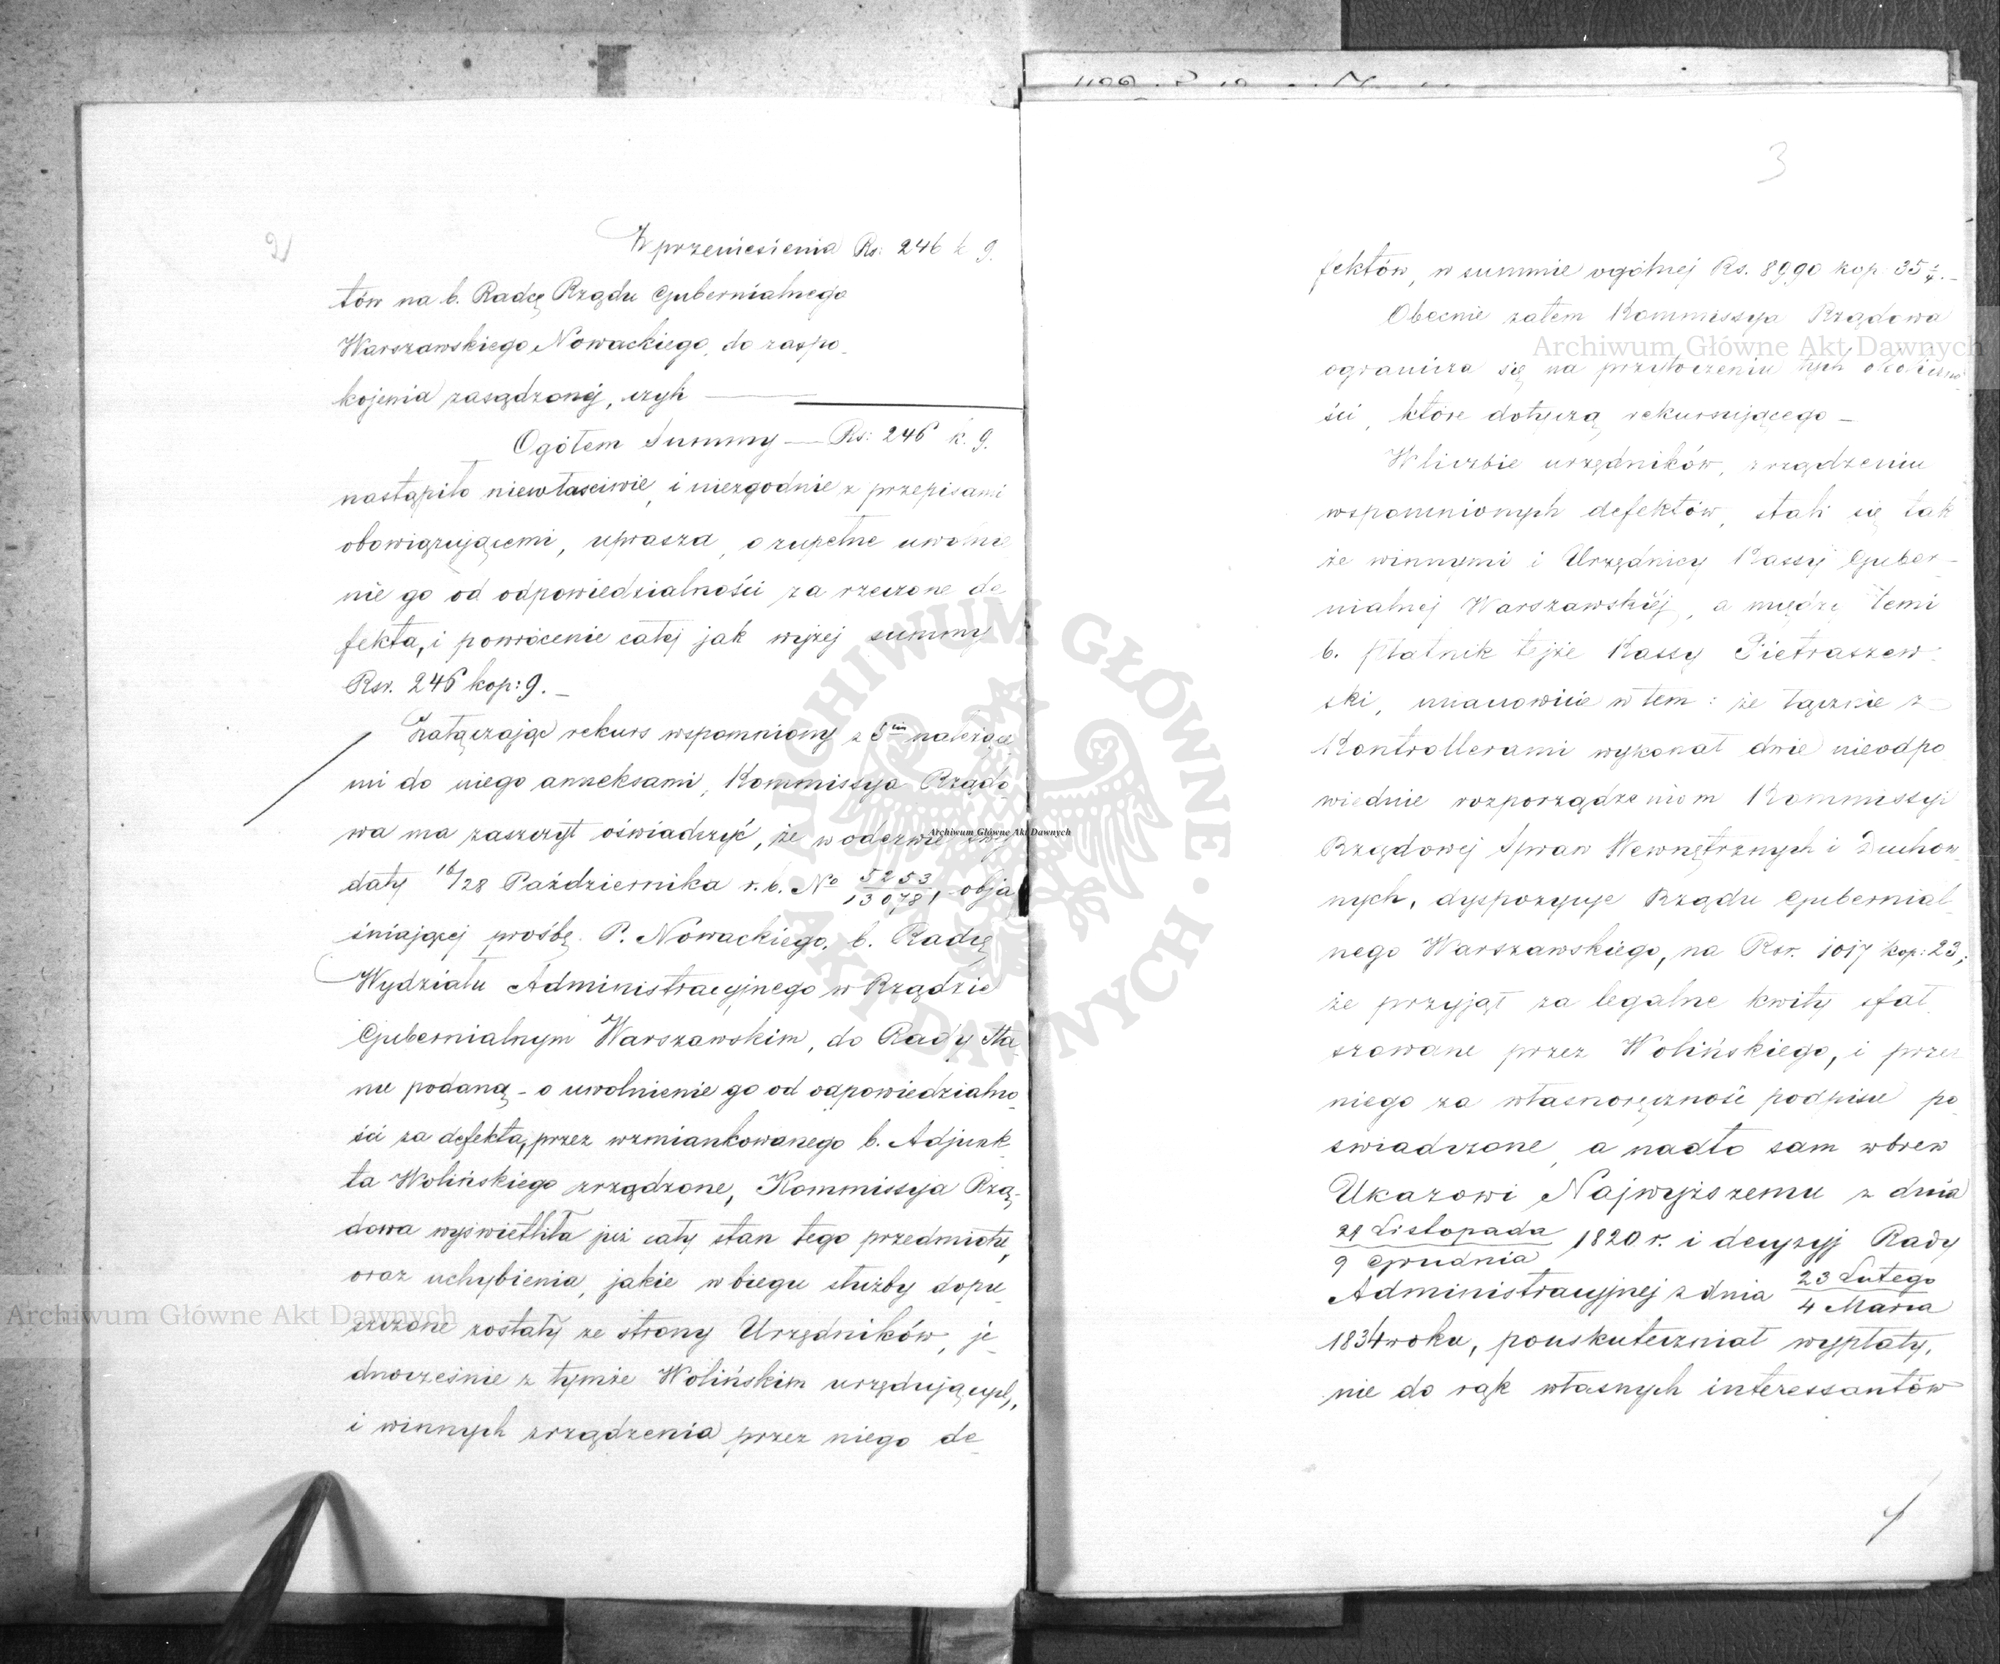 2)
Z przeniesienia Rs: 246 k 9.
tów na b. Radcę Rządu Gubernialnego
Warszawskiego Nowackiego, do zaspo-
kojenia zasądzonej, czyli
Ogółem Summy — Rs: 246 k. 9.
nastąpiło niewłaściwie, i niezgodnie z przepisami
obowiązującemi, uprasza, o zupełne uwolnie
nie go od odpowiedzialności za rzeczone de
fekta, i powrócenie całej jak wyżej summy
Rsr. 246 kop: 9. –
Załączając rekurs wspomniony z 5ciu należące
mi do niego anneksami, Kommissya Rządo-
wa ma zaszczyt oświadczyć, że w odezwie swej
daty 16/28 Października r. b. No 5253/130781 obja
śniającej prośbę P. Nowackiego, b. Radcę
Wydziału Administracyjnego w Rządzie
Gubernialnym Warszawskim, do Rady Sta-
nu podaną – o uwolnienie go od odpowiedzialno-
ści za defekta, przez wzmiankowanego b. Adjunk-
ta Wolińskiego zrządzone, Kommissya Rzą-
dowa wyświetliła już cały stan tego przedmiotu,
oraz uchybienia, jakie w biegu służby dopu-
szczone zostały ze strony Urzędników, je-
dnocześnie z tymże Wolińskim urzędujących,
i winnych zrządzenia przez niego de-
3
fektów, w summie ogólnej Rs. 8990 kop. 35
Obecnie zatem Kommissya Rządowa
ogranicza się na przytoczeniu tych okoliczno
ści, które dotyczą rekursującego –
W liczbie urzędników, zrządzeniu
wspomnionych defektów, stali się tak
że winnymi i Urzędnicy Kassy Guber-
nialnej Warszawskiej, a między temi
b. Płatnik tejże Kassy Pietraszew-
ski, mianowicie w tem: że łącznie z
Kontrollerami wykonał dwie nieodpo
wiednie rozporządzeniom Kommissyi
Rządowej Spraw Wewnętrznych i Duchow-
nych, dyspozycye Rządu Gubernial-
nego Warszawskiego, na Rsr. 1017 kop: 23,
że przyjął za legalne kwity sfał-
szowane przez Wolińskiego, i przez
niego za własnoręczność podpisu po
świadczone, a nadto sam wbrew
Ukazowi Najwyższemu z dnia
21 Listopada/9 Grudnia 1820 r. i decyzyj Rady
Administracyjnej z dnia 23 Lutego/4 Marca
1834 roku, pouskuteczniał wypłaty,
nie do rąk własnych interessantów
Archiwum Główne Akt Dawnych
Archiwum Główne Akt Dawnych
Archiwum Główne Akt Dawnych
ARCHIWUM GŁÓWNE · AKT DAWNYCH ·